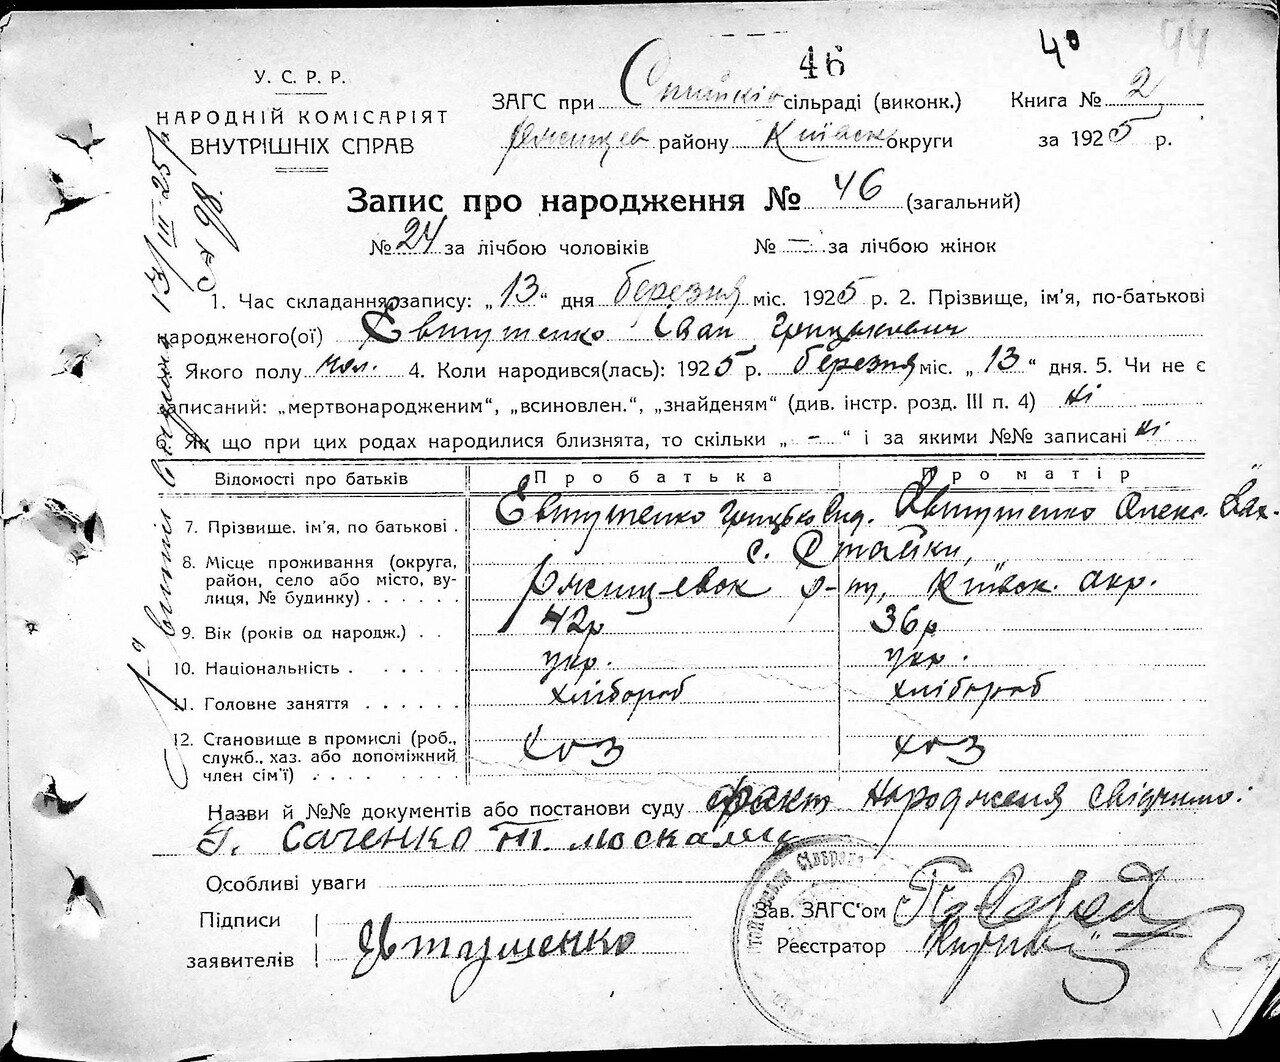 46
4°
44
У. С. Р. Р.
НАРОДНІЙ КОМІСАРІЯТ
ВНУТРІШНІХ СПРАВ
ЗАГС при сільраді (виконк.)
району Київськ округи
Книга № 2
за 1925 р.
Запис про народження № 46 (загальний)
№ 24 за лічбою чоловіків № — за лічбою жінок
1. Час складання запису: „13“ дня березня міс. 1925 р. 2. Прізвище, ім’я, по-батькові
народженого(ої) Євтушенко Іван Грицькович
Якого полу чол. 4. Коли народився(лась): 1925 р. березня міс. „13“ дня. 5. Чи не є
записаний: „мертвонародженим“, „всиновлен.“, „знайденям“ (див. інстр. розд. III п. 4) ні
Як що при цих родах народилися близнята, то скільки „-“ і за якими №№ записані ні
Відомості про батьків Про батька Про матір
7. Прізвище. ім’я, по батькові . Євтушенко Грицько Євтушенко Олекс.
8. Місце проживання (округа, с. Стайки,
район, село або місто, ву-
лиця, № будинку) . . . . . Ржищевск р-ну, Київск. окр.
9. Вік (років од народж.) . . 42р 36р
10. Національність . . . . . укр. укр.
11. Головне заняття . . . . . . хлібороб хлібороб
12. Становище в промислі (роб.,
служб., хаз. або допоміжний хоз хоз
член сім’ї) . . . . . .
Назви й №№ документів або постанови суду факт народженя свідчимо:
Саченко Москалец
Особливі уваги
Підписи
заявителів Явтушенко
Зав. ЗАГС’ом
Реєстратор